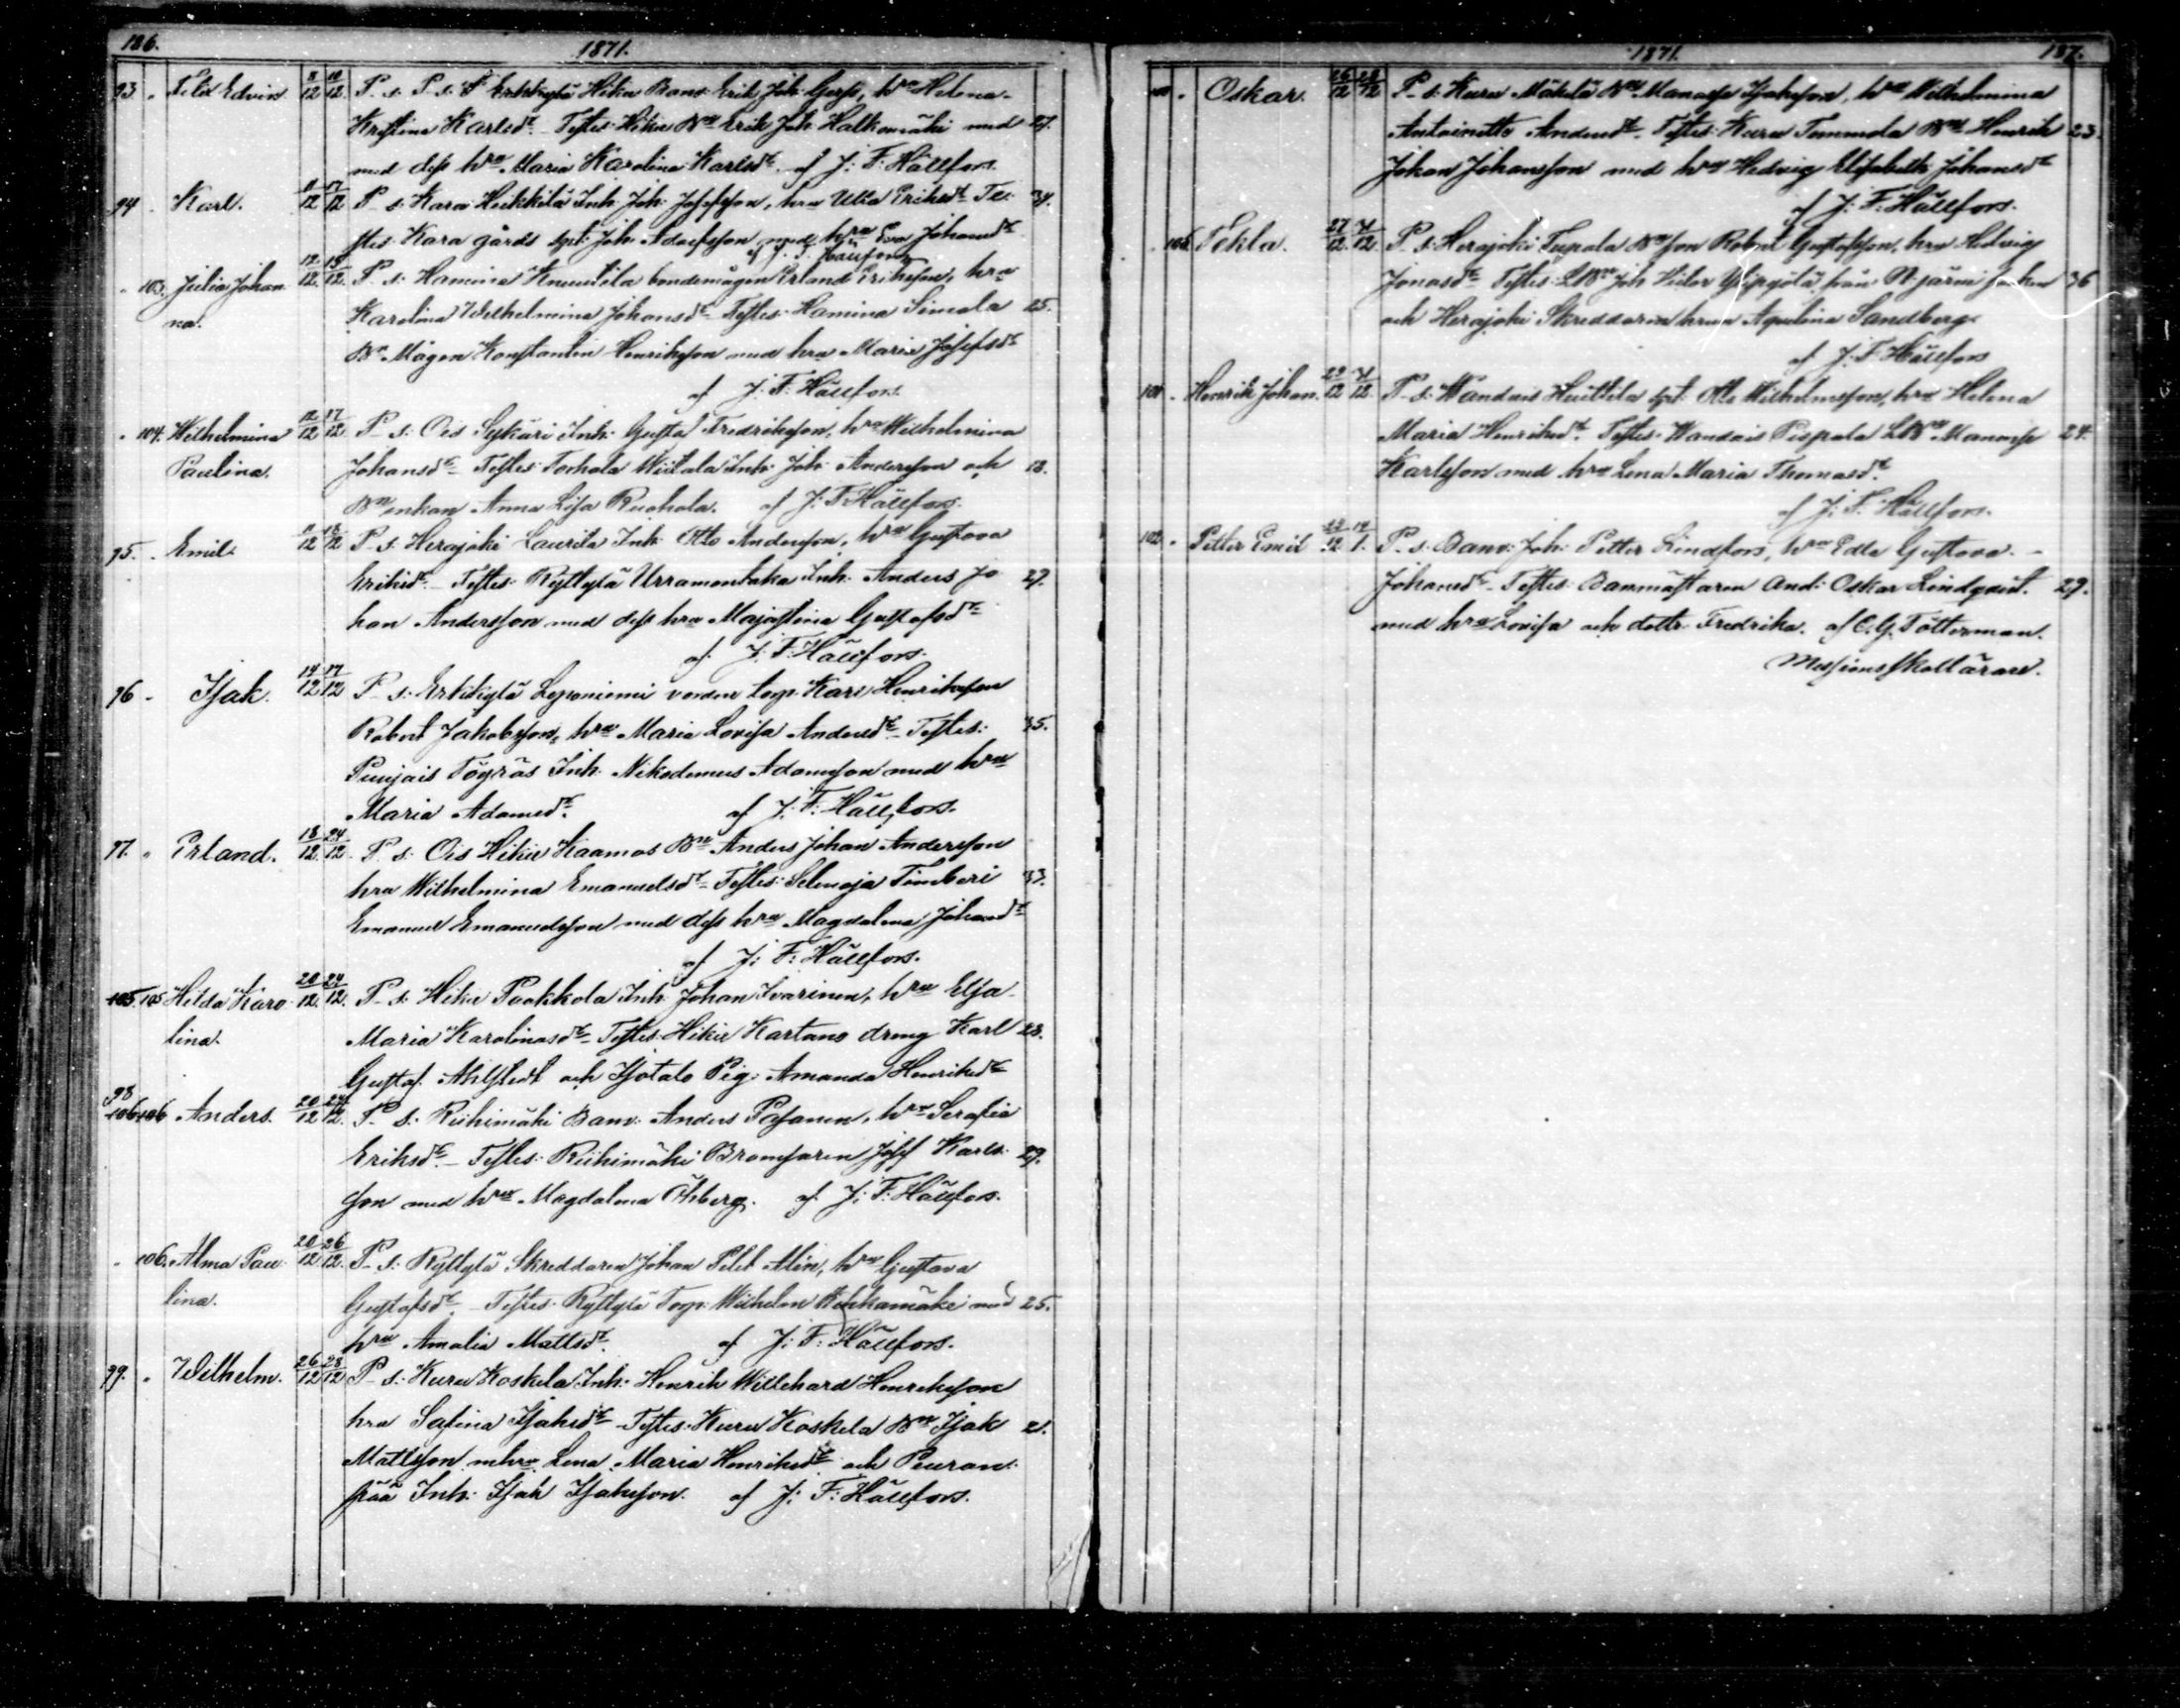 186.
1871.
93. " Felix Edvin 8/12 10/12 P. s. Erkkylä Hikiä Banv. Erik Joh. hru Helena
Kristina Karlsdr. Testes: Hikiä Bn Erik Joh. Halkomäki med 27.
med dess hru Maria Karolina Karlsdr. af J. F. Hällfors.
94 " Karl. 11/12 17/12 P. s. Kara Heikkilä Inh. Joh. Josefsson, hru Ulla Eriksdr. Te- 34.
stes. Kara gårds Joh. Adolfsson med hru Eva Johansdr.
af J. F. Hällfors
" 103. Julia Johan- 12/12 15/12 P. s. Hamina Knuutila bondemågen Erland Eriksson, hru
na. Karolina Wilhelmina Johansdr. Testes: Hamina Simola 25.
Bn Mågen Konstantin Henriksson med hru Maria Josefsdr.
af J. F. Hällfors.
" 104. Wilhelmina 12/12 17/12 P. s. Ois Sykäri Inh. Gustaf Fredriksson, hru Wilhelmina
Paulina. Johansdr. Testes: Torhola Wiitala Inh. Joh. Andersson och 18.
Bn enkan Anna Lisa Ruohola. af J. F. Hällfors.
95. " Emil. 11/12 18/12 P. s. Herajoki Laurila Inh. Otto Andersson, hru Gustava
Eriksdr. Testes: Ryttylä Urramonlaka Inh. Anders Jo- 27.
han Andersson med dess hru Majastina Gustafsdr.
af J. F. Hällfors.
96 " Isak. 14/12 17/12 P. s. Erkkylä Leponiemi vorden torp. Karl Henriksson
Robert Jakobsson, hru Maria Lovisa Andersdr. Testes: 35.
Puujais Töyräs Inh. Nikodemus Adamsson med hru
Maria Adamsdr. af J. F. Hällfors.
97. " Erland. 18/12 24/12 P. s. Ois Hikiä Kaamos Bn Anders Johan Andersson
hru Wilhelmina Emanuelsdr. Testes: Selenoja Timberi 33.
Emanuel Emanuelsson med dess hru Magdalena Johansdr.
af J. F. Hällfors.
105. 105 Hilda Karo- 20/12 24/12 P. s. Hikiä Paakkola Inh. Johan Ivarinen, hru Elsa
lina. Maria Karolinasdr. Testes: Hikiä Kartano dreng Karl 28.
Gustaf Ahlstedt och Isotalo Pig. Amanda Henriksdr.
98
106 106 Anders. 20/12 24/12 P. s. Riihimäki Banv. Anders Pasanen, hru Serafia
Eriksdr. Testes: Riihimäki Bromsaren Josef Karls- 29.
son med hru Magdalena Öhberg. af J. F. Hällfors.
" 106. Alma Pau- 20/12 26/12 P. s. Ryttylä Skreddaren Johan Alin, hru Gustava
lina. Gustafsdr. Testes: Ryttylä Torp. Wilhelm med 25.
hru Amalia Mattsdr. af J. F. Hällfors.
99. " Wilhelm. 26/12 28/12 P. s. Kuru Koskela Inh. Henrik Willehard Henriksson
hru Safina Isaksdr. Testes: Kuru Koskela Bn Isak 21.
Mattsson m hru Lena Maria Henriksdr. och Peuran-
pää Inh. Isak Isaksson. af J. F. Hällfors.
1871.
187.
100 " Oskar. 26/12 28/12 P. s. Kuru Mäkelä Bn Manasse Isaksson, hru Wilhelmina
Antoinetta Andersdr. Testes: Kuru Tommola Bn Henrik 23.
Johan Johansson med hru Hedvig Elisabeth Johansdr.
af J. F. Hällfors.
" Tekla. 27/12 31/12 P. s. Herajoki Tupala Bn son Robert Gustafsson, hru Hedvig
Jonasdr. Testes: LBn Joh. Viktor från socken 36
och Herajoki Skreddaren hrun Aqvilina Sandberg.
af J. F. Hällfors
101 " Henrik Johan. 29/12 31/12 P. s. Wandais Huittila Otto Wilhelmsson, hru Helena
Maria Henriksdr. Testes: Wandais Pispala LBn Manasse 24.
Karlsson med hru Lena Maria Thomasdr.
af J. F. Hällfors.
102 " Petter Emil P. s. Banv. Joh. Petter Lindfors, hru Edla Gustava
Johansdr. Testes: Banmästaren And. Oskar Lindqvist. 29.
med hru Lovisa och dottr. Fredrika. af C. G. Tötterman.
Missionsskollärare.